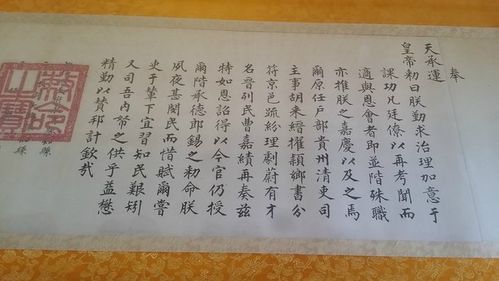 奉
天承運
皇帝勅曰朕勤求治理加意于
課功凡廷僚以再考聞而
適與恩會者即並階殊職
亦推朕之嘉慶以及之焉
爾原任戶部貴州清吏司
主事胡來縉擢穎鄉書分
符京邑疏紛理劇蔚有才
名晉列民曹嘉績再奏茲
特如恩詔得以今官仍授
爾階承德郎錫之勅命朕
夙夜甚閔民而惜賦爾嘗
吏于輦下宜習知民艱矧
又司吾內帑之供乎益懋
精勤以贊邦計欽哉